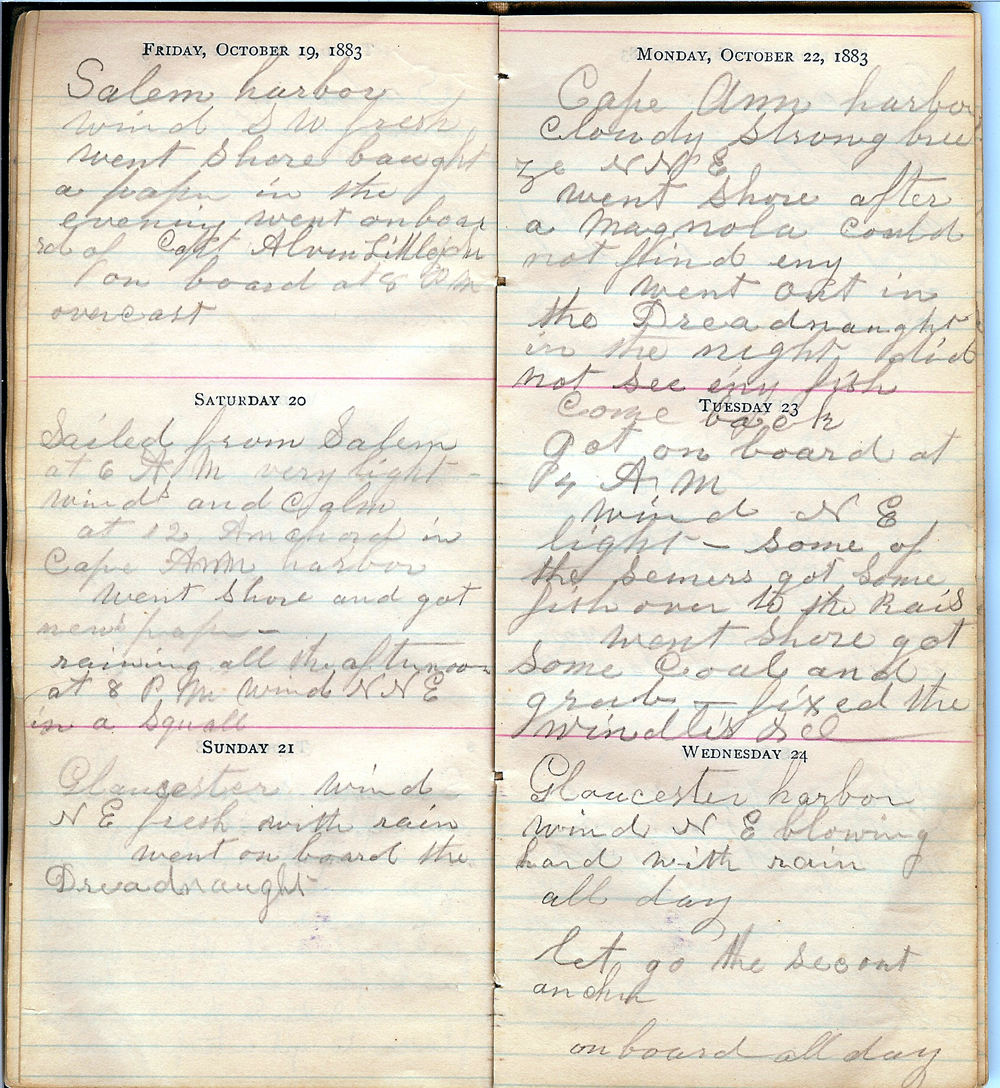 FRIDAY, OCTOBER 19, 1883
Salem harbor
wind S W fresh
went Shore baught
a papr in the
evening went onboar
rd of Capt Alven
on board at 8 P M
overcast
SATURDAY 20
Sailed from Salem
at 6 A M very light
wind and Calm
at 12 Anchord in
Cape Ann harbor
went Shore and got
news papr
raining all the afternoon
at 8 P M wind N N E
in a Squall
SUNDAY 21
Glaucester wind
N E fresh with rain
went on board the
Dreadnaught
MONDAY, OCTOBER 22, 1883
Cape Ann harbor
Cloudy Strong bree
ze N N E
went Shore after
a Magnola could
not find eny
went out in
the Dreadnaught
in the night did
not See eny fish
Come back
TUESDAY 23
got on board at
A M
wind N E
light – Some of
the Seiners got Some
fish over to the Rais
went Shore got
Some Coal and
grub – fixed the
windles &c
WEDNESDAY 24
Gloucester harbor
wind N E blowing
hard with rain
all day
let go the Secont
anchr
on board all day